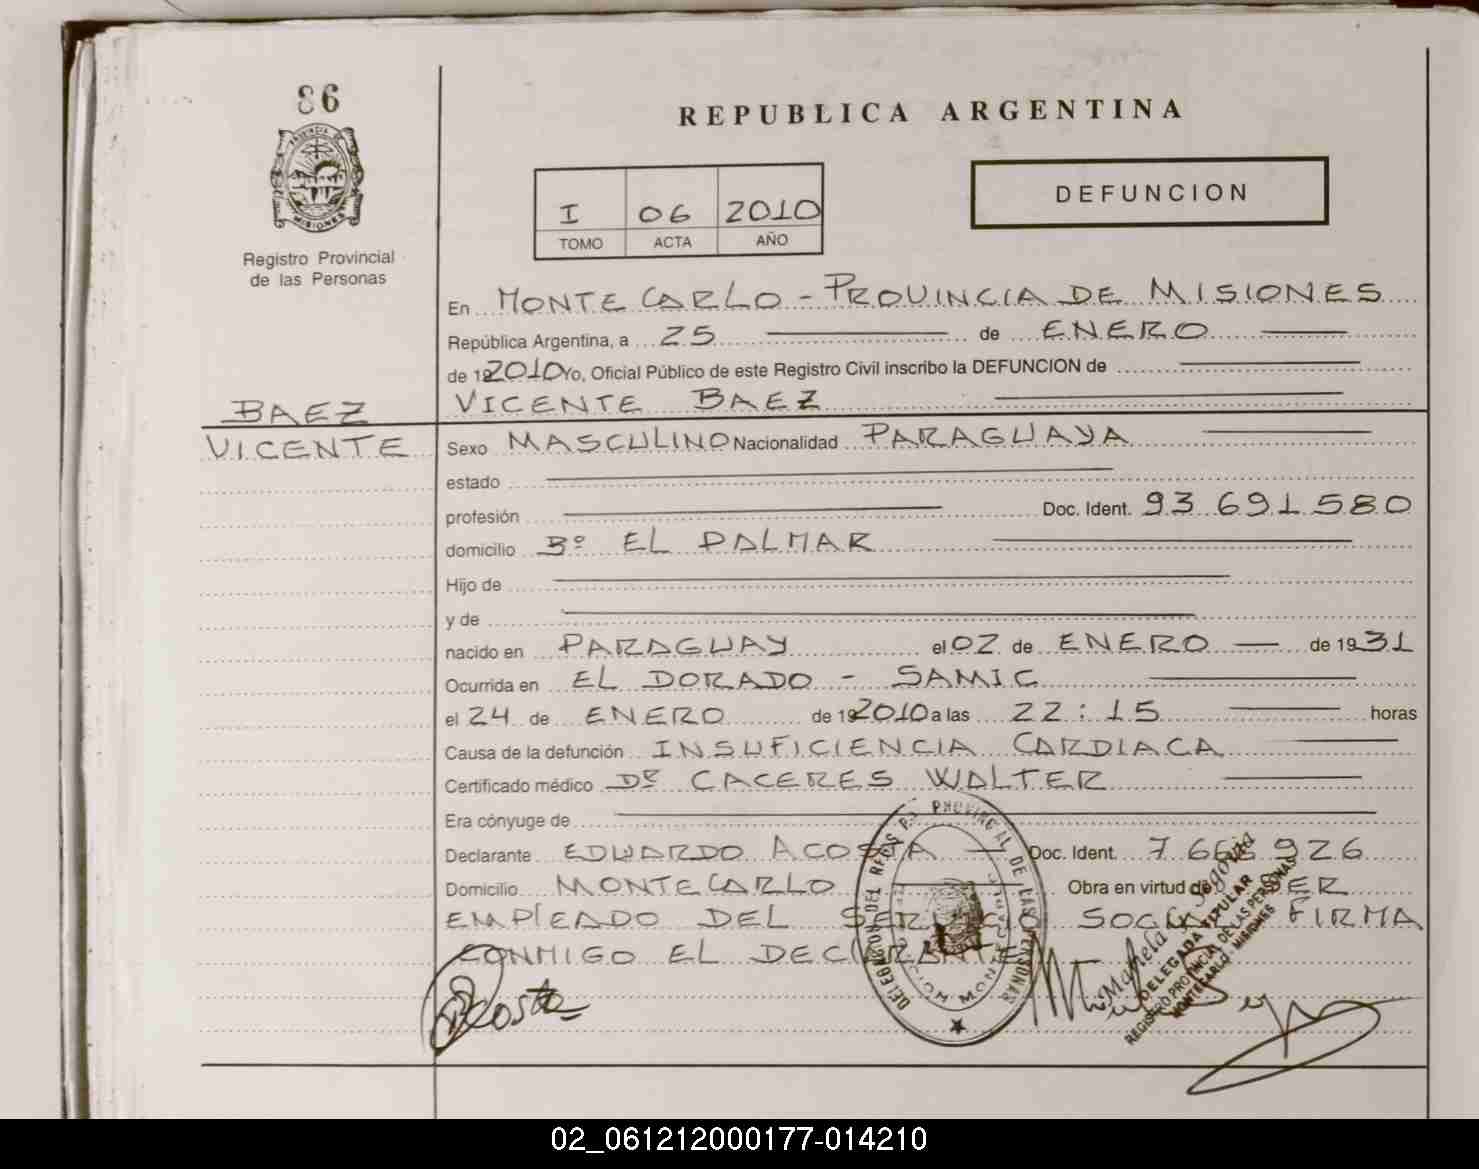 86
PROVINCIA DE
MISIONES
Registro Provincial
de las Personas
REPUBLICA ARGENTINA
I 06 2010
TOMO ACTA AÑO
DEFUNCION
En MONTECARLO - PROVINCIA DE MISIONES
República Argentina, a 25 de ENERO
de 2010 Yo, Oficial Público de este Registro Civil inscribo la DEFUNCION de
VICENTE BAEZ
BAEZ
VICENTE
Sexo MASCULINO Nacionalidad PARAGUAYA
estado
profesión Doc. Ident. 93 691 580
domicilio Bº EL PALMAR
Hijo de
y de
nacido en PARAGUAY el 02 de ENERO de 1931
Ocurrida en EL DORADO - SAMIC
el 24 de ENERO de 2010 a las 22:15 horas
Causa de la defunción INSUFICIENCIA CARDIACA
Certificado médico Dr CACERES WALTER
Era cónyuge de
Declarante EDUARDO ACOSTA Doc. Ident.
Domicilio MONTECARLO Obra en virtud de SER
EMPLEADO DEL SERVICIO SOCIAL FIRMA
CONMIGO EL DECLARANTE
Acosta
DELEGADA TITULAR
REGISTRO PROVINCIAL DE LAS PERSONAS
MONTECARLO - MISIONES
02_061212000177-014210